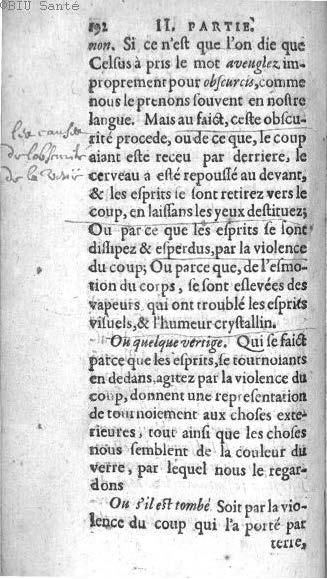 ©BIU Santé
192 II. PARTIE.
non. Si ce n'est que l'on die que
Celsus à pris le mot aveuglez, im-
proprement pour obscurcis, comme
nous le prenons souvent en nostre
langue. Mais au faict, ceste obscu-
rité procede, ou de ce que, le coup
aiant esté receu par derriere, le
cerveau a esté repoussé au devant,
& les esprits se sont retirez vers le
coup, en laissans les yeux destituez;
Ou parce que les esprits se sont
dissipez & esperdus, par la violence
du coup; Ou parce que, de l'esmo-
tion du corps, se sont eslevées des
vapeurs qui ont troublé les esprits
visuels, & l'humeur crystallin.
Ou quelque vertige. Qui se faict
parce que les esprits, se tournoiants
en dedans, agitez par la violence du
coup, donnent une representation
de tournoiement aux choses exte-
rieures, tout ainsi que les choses
nous semblent de la couleur du
verre, par lequel nous le regar-
dons
Ou s'il est tombé. Soit par la vio-
lence du coup qui l'a porté par
terre,
les causes
de l'obscurité
de la veue